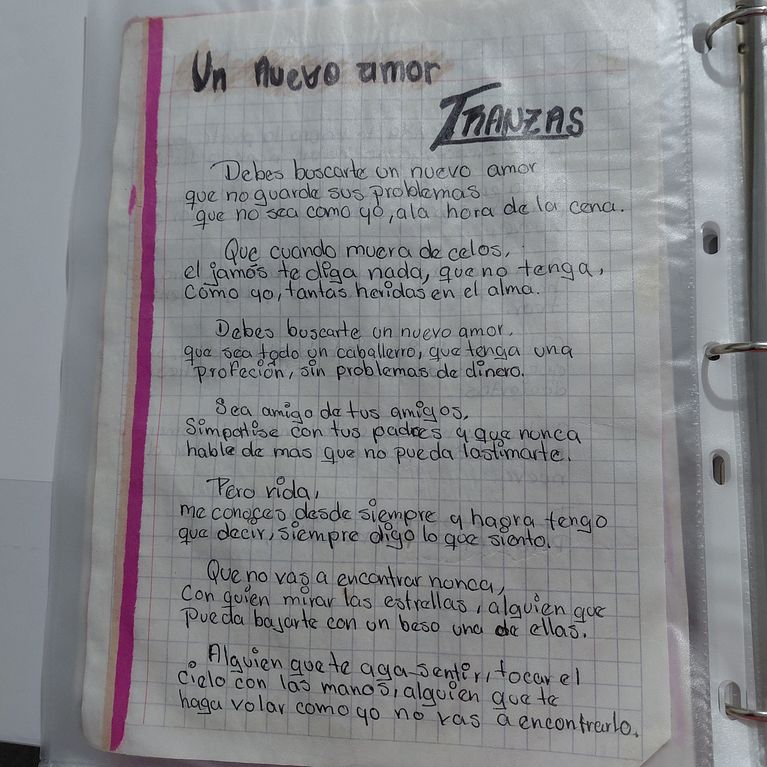 Un nuevo amor
TRANZAS
Debes buscarte un nuevo amor
que no guarde sus problemas
que no sea como yo, ala hora de la cena.
Que cuando muera de celos,
el jamás te diga nada, que no tenga,
como yo, tantas heridas en el alma.
Debes buscarte un nuevo amor.
que sea todo un caballerro, que tenga una
profeción, sin problemas de dinero.
Sea amigo de tus amigos,
simpatise con tus padres y que nunca
hable de mas que no pueda lastimarte.
Pero vida,
me conoces desde siempre y hagra tengo
que decir, siempre digo lo que siento.
Que no vas a encontrar nunca,
con quien mirar las estrellas, alguien que
pueda bajarte con un beso una de ellas.
Alguien que te aga sentir, tocar el
cielo con las manos, alguien que te
haga volar como yo no vas a encontrarlo.